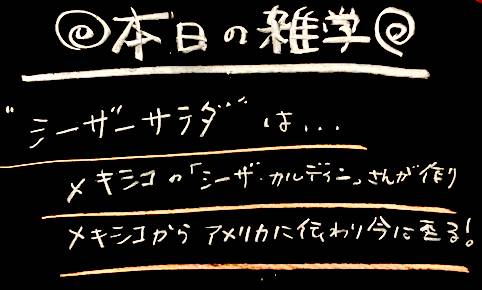 本日の雑学
"シーザーサラダ"は...
メキシコの「シーザ・カルディニ」さんが作り
メキシコからアメリカに伝わり今に至る!